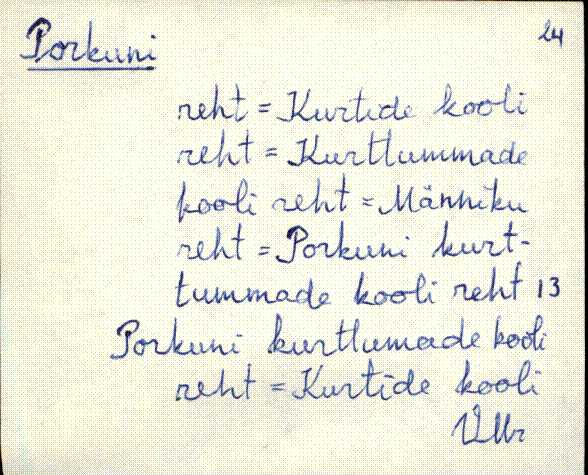 Porkuni 24
reht = Kurtide kooli
reht = Kurttummade
kooli reht = Männiku
reht = Porkuni kurt-
tummade kooli reht 13
Porkuni kurttumade kooli
reht = Kurtide kooli